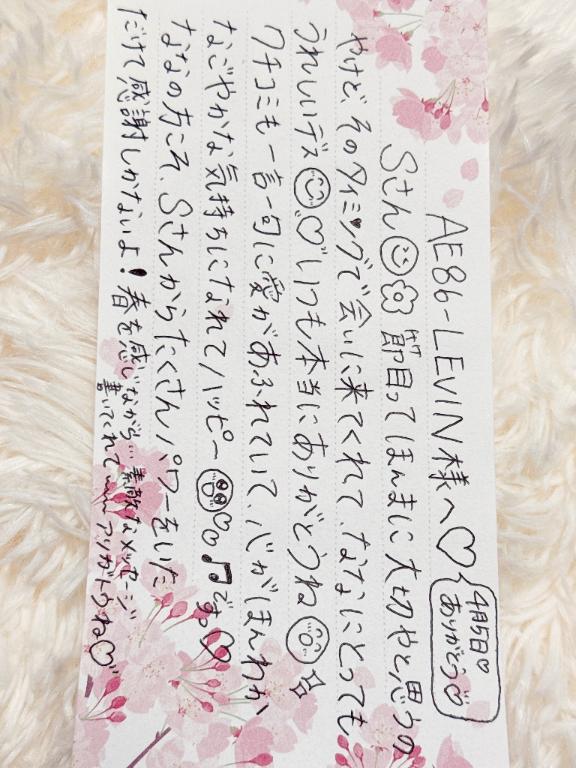 AE86-LEVIN様へ♡
4月5日♡
ありがとう♡
Sさん 節目ってほんまに大切やと思うの
やけど、そのタイミングで会いに来てくれて、ななにとっても
うれしいデス♡いつも本当にありがとうね
クチコミも一言一句に愛があふれていて、心がほんわか
なごやかな気持ちになれてハッピー♡♡♫ですっ♡
ななの方こそ、Sさんからたくさんパワーをいた
だけて感謝しかないよ!春を感じながら…素敵なメッセージ
書いてくれて アリガトウね♡